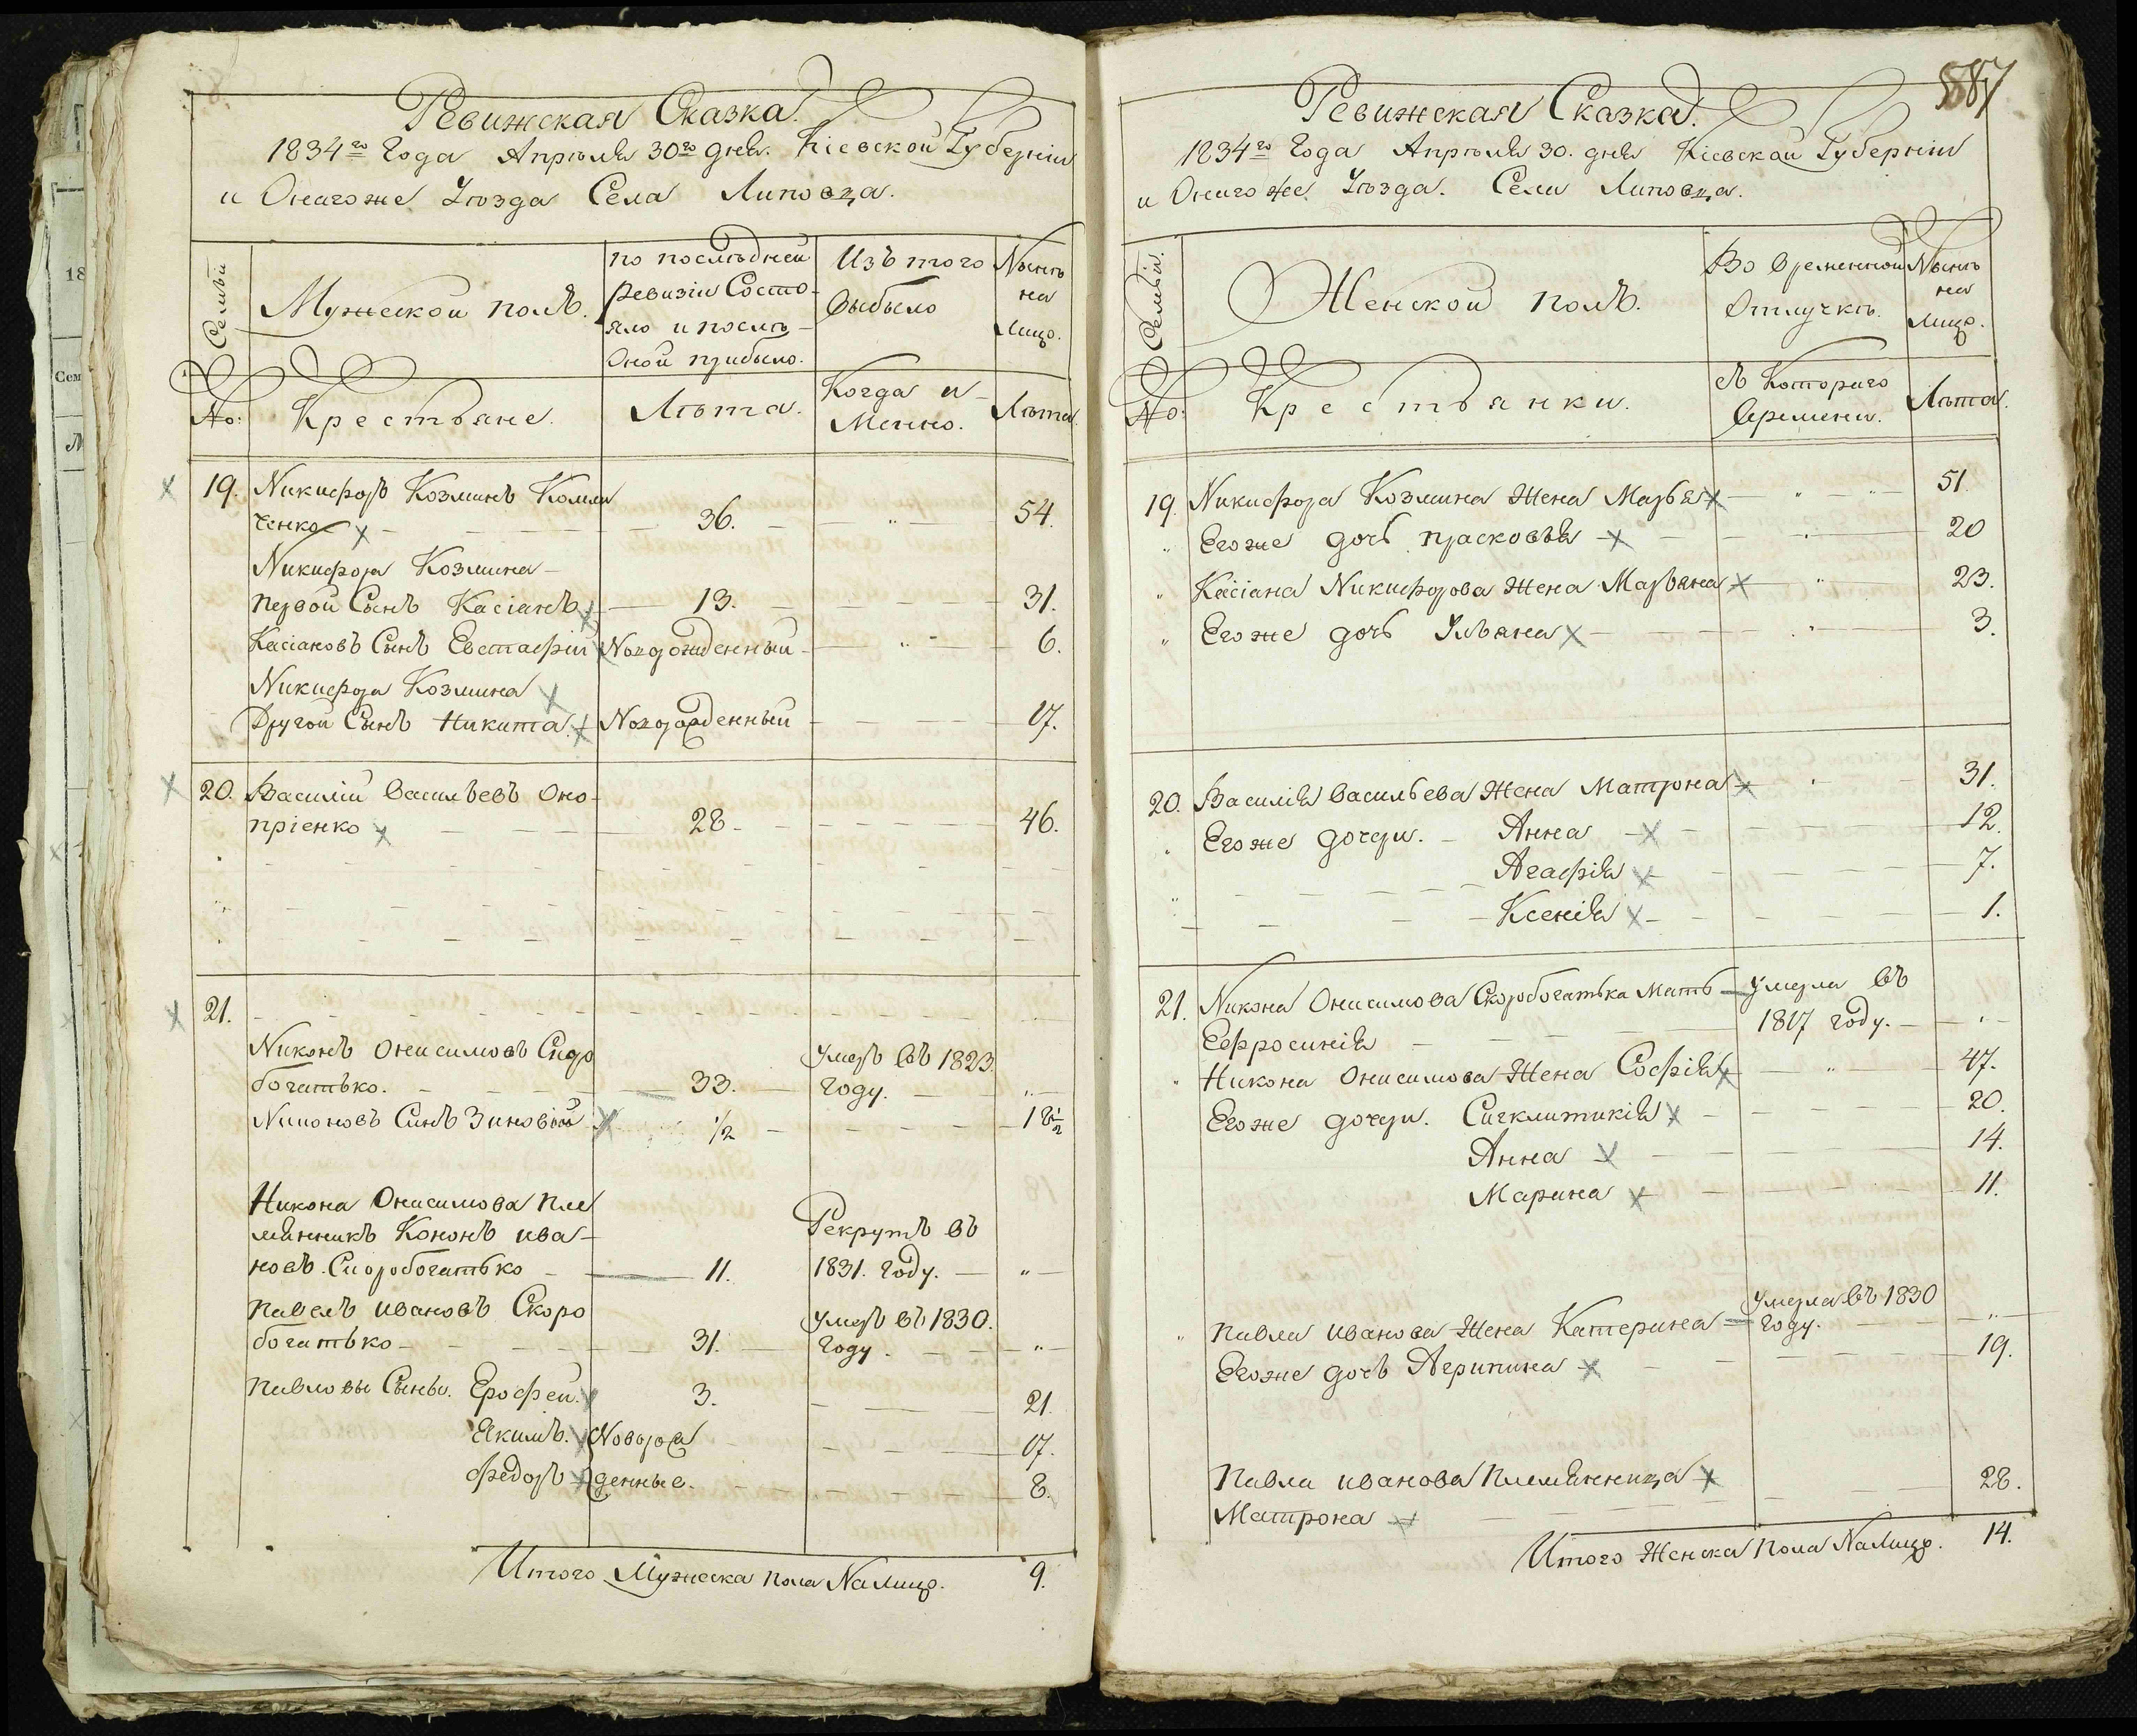 Ревижская Сказка.
1834го Года Апреля 30го дня. Кіевской Губерніи
и Онагоже Уезда Села Липовца.
Семьи
Мужеской полъ.
по последней
Ревизіи Состо-
яло и после-
Оной прибыло.
Изъ того
Выбыло
Ныне
на
Лицо.
No:
Крестьяне.
Лета.
Когда и-
Менно.
Лета.
19. Никифоръ Козминъ Комли
ченко — 36. — „ — 54.
Никифора Козмина
первой Сынъ Касіанъ — 13. — 31.
Касіановъ Сынъ Евстафій Новорожденный — „ — 6.
Никифора Козмина
Другой Сынъ Никита. Новорожденный — 17.
20. Василій Васильевъ Оно-
пріенко — 28 — 46.
21.
Никонъ Онисимовъ Скоро Умеръ въ 1823.
богатько. — 33. Году. — „
Никоновъ Сынъ Зиновій 1/2 — 18 1/2
Никона Онисимова Пле
мянникъ Кононъ ива- Рекрутъ въ
новъ. Скоробогатько — 11. 1831. Году. — „
Павелъ ивановъ Скоро Умеръ въ 1830.
богатько — 31. Году. — „
Павловы Сыны. Ерофей. 3. — 21.
Якимъ. Новорож — 17.
Федоръ денные. — 8.
Итого Мужеска пола На Лицо. 9.
887
Ревижская Сказка.
1834го Года Апреля 30. дня Кіевской Губерніи
и Онагоже Уезда. Села Липовца.
Семьи.
Женской полъ.
Во временной
Отлучке.
Ныне
на
Лицо.
No:
Крестьянки.
съ Котораго
Времени.
Лета.
19. Никифора Козмина Жена Марья — „ — „ — 51.
„ Егоже дочь прасковья — 20
„ Касіана Никифорова Жена Марьяна — „ — 23.
„ Егоже дочь Ульяна — 3.
20. Василія Васильева Жена Матрона — 31.
„ Егоже дочери. — Анна — 12.
„ Агафія — 7.
Ксенія — 1.
21. Никона Онисимова Скоробогатька Мать — Умерла въ
Ефросинія — 1817 Году. — „
„ Никона Онисимова Жена Софія — „ — 47.
Егоже дочери. Сигклитикія — 20.
Анна — 14.
Марина — 11.
Умерла въ 1830
„ Павла иванова Жена Катерина — Году. — „
Егоже дочь Агрипина — 19.
Павла иванова Племянница — 28.
Матрона
Итого Женска Пола На Лицо. 14.